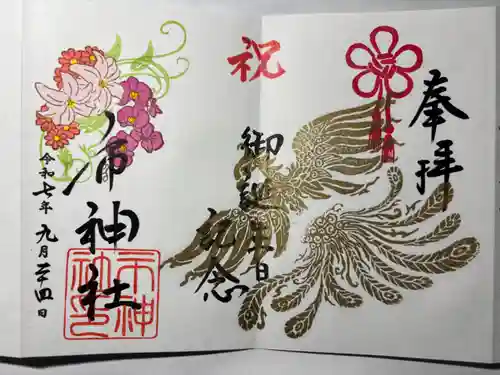 奉拝
祝
御誕生日
記念
神社
令和七年九月二十四日